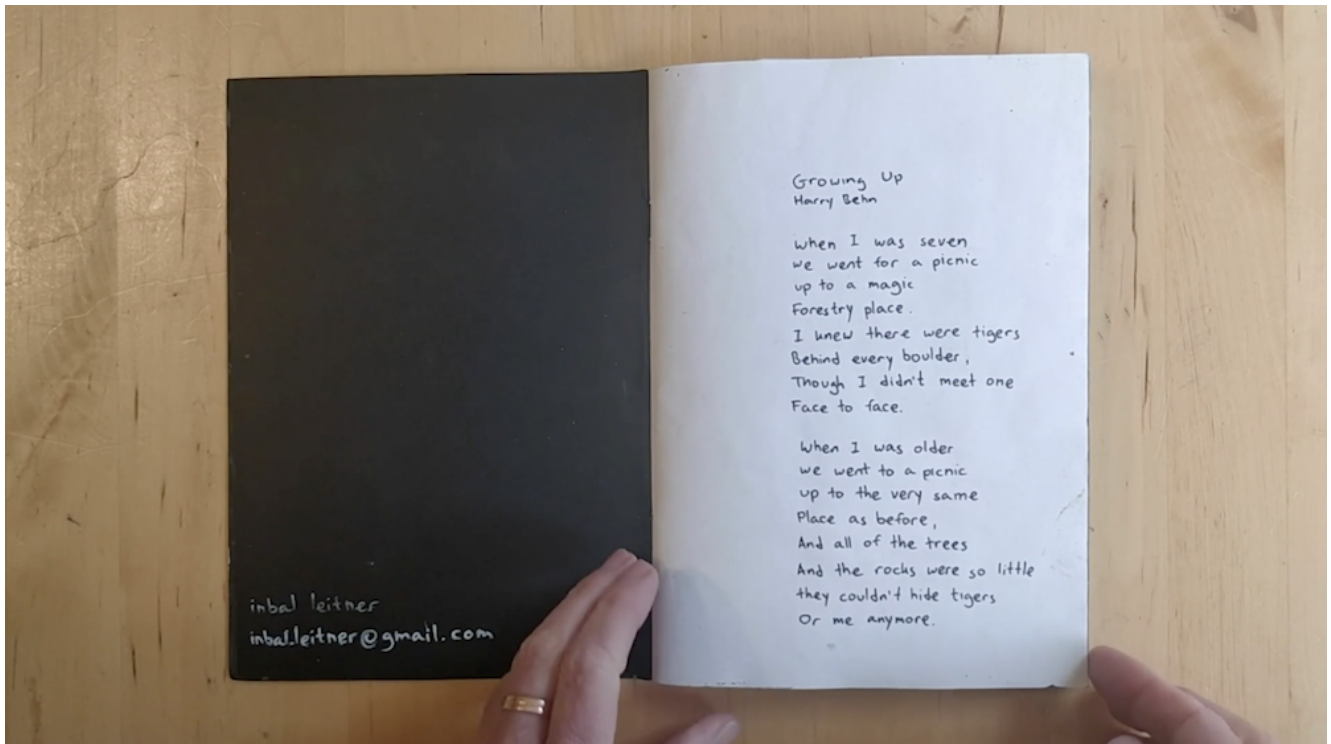 inbal leitner
inbal.leitner@gmail.com
Growing Up
Harry Behn
when I was seven
we went for a picnic
up to a magic
Forestry place.
I unew there were tigers
Behind every boulder,
Though I didn't meet one
Face to face.
when I was older
we went to a picnic
up to the very same
Place as before,
And all of the trees
And the rocks were so little
they couldn't hide tigers
Or me anymore.